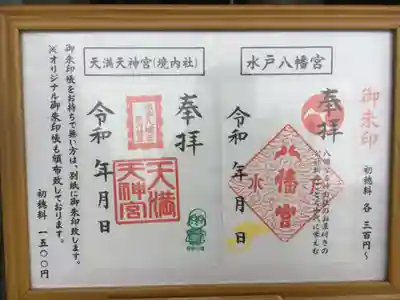 御朱印
初穂料 各 三百円~
水戸八幡宮
奉拝
八幡宮
水
令和 年 月 日
天満天神宮(境内社)
奉拝
天満
天神宮
令和 年 月 日
御朱印帳をお持ちで無い方は、別紙に御朱印致します。
※オリジナル御朱印帳も頒布致しております。
初穂料 一五〇〇円